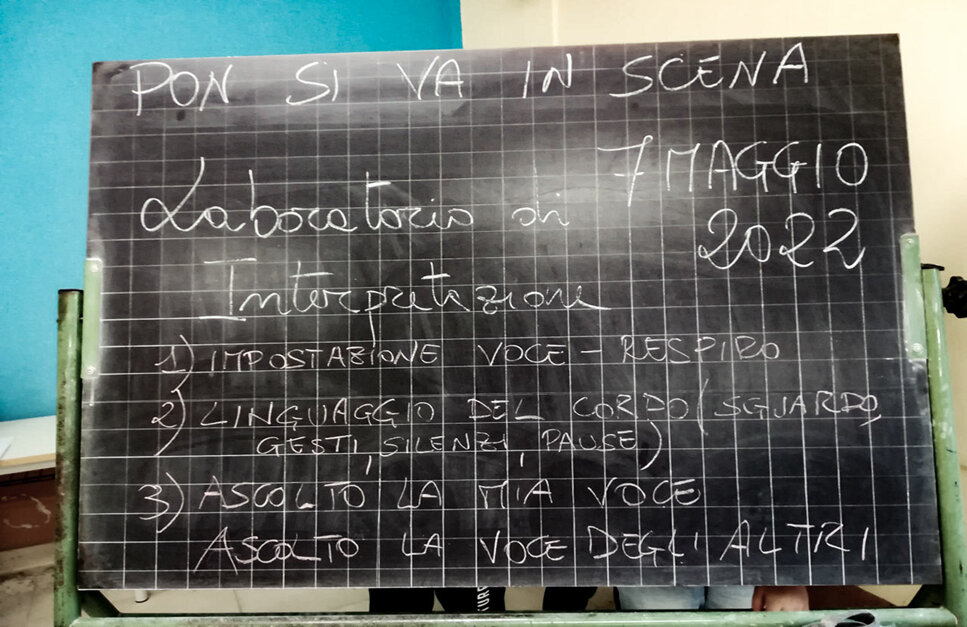 PON SI VA IN SCENA
7 MAGGIO
2022
Laboratorio di
Interpretazione
1) IMPOSTAZIONE VOCE - RESPIRO
2) LINGUAGGIO DEL CORPO (SGUARDO,
GESTI, SILENZI, PAUSE)
3) ASCOLTO LA MIA VOCE
ASCOLTO LA VOCE DEGLI ALTRI